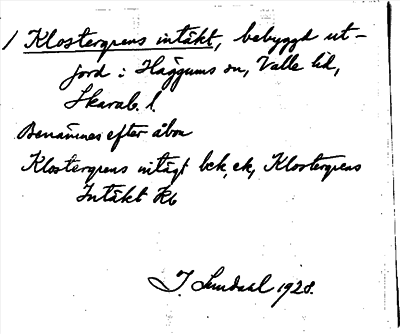 / Klostergrens intäkt, bebyggd ut-
jord i Häggums sn, Valle hd,
Skarab. l.
Benämnes efter åbon
Klostergrens intägt bck, ek, Klostergrens
Intäkt Rb
J. Lundahl 1928.